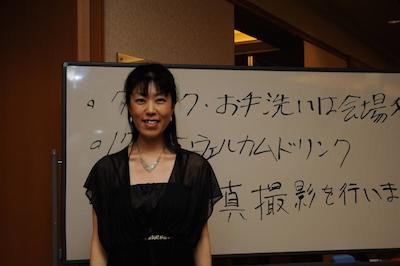 ・ク ク・お手洗いは会場
ウェルカムドリンク
真撮影を行いま